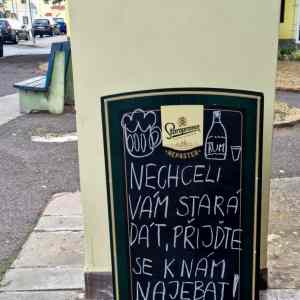 Staropramen
NEPASTER
RUM
NECHCELI
VÁM STARÁ
DÁT, PŘIJĎTE
SE K NÁM
NAJEBAT!